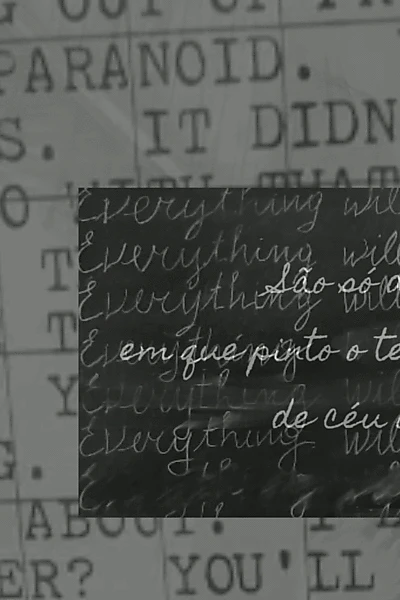 OUT OF
PARANOID.
S. IT DIDN
O WITH THAT
Everything will
Everything will
São só a
Everything will
em que pinto o te
Everything
Everything will
de céu
Everything will
G.
ABOUT. I
ER? YOU'LL